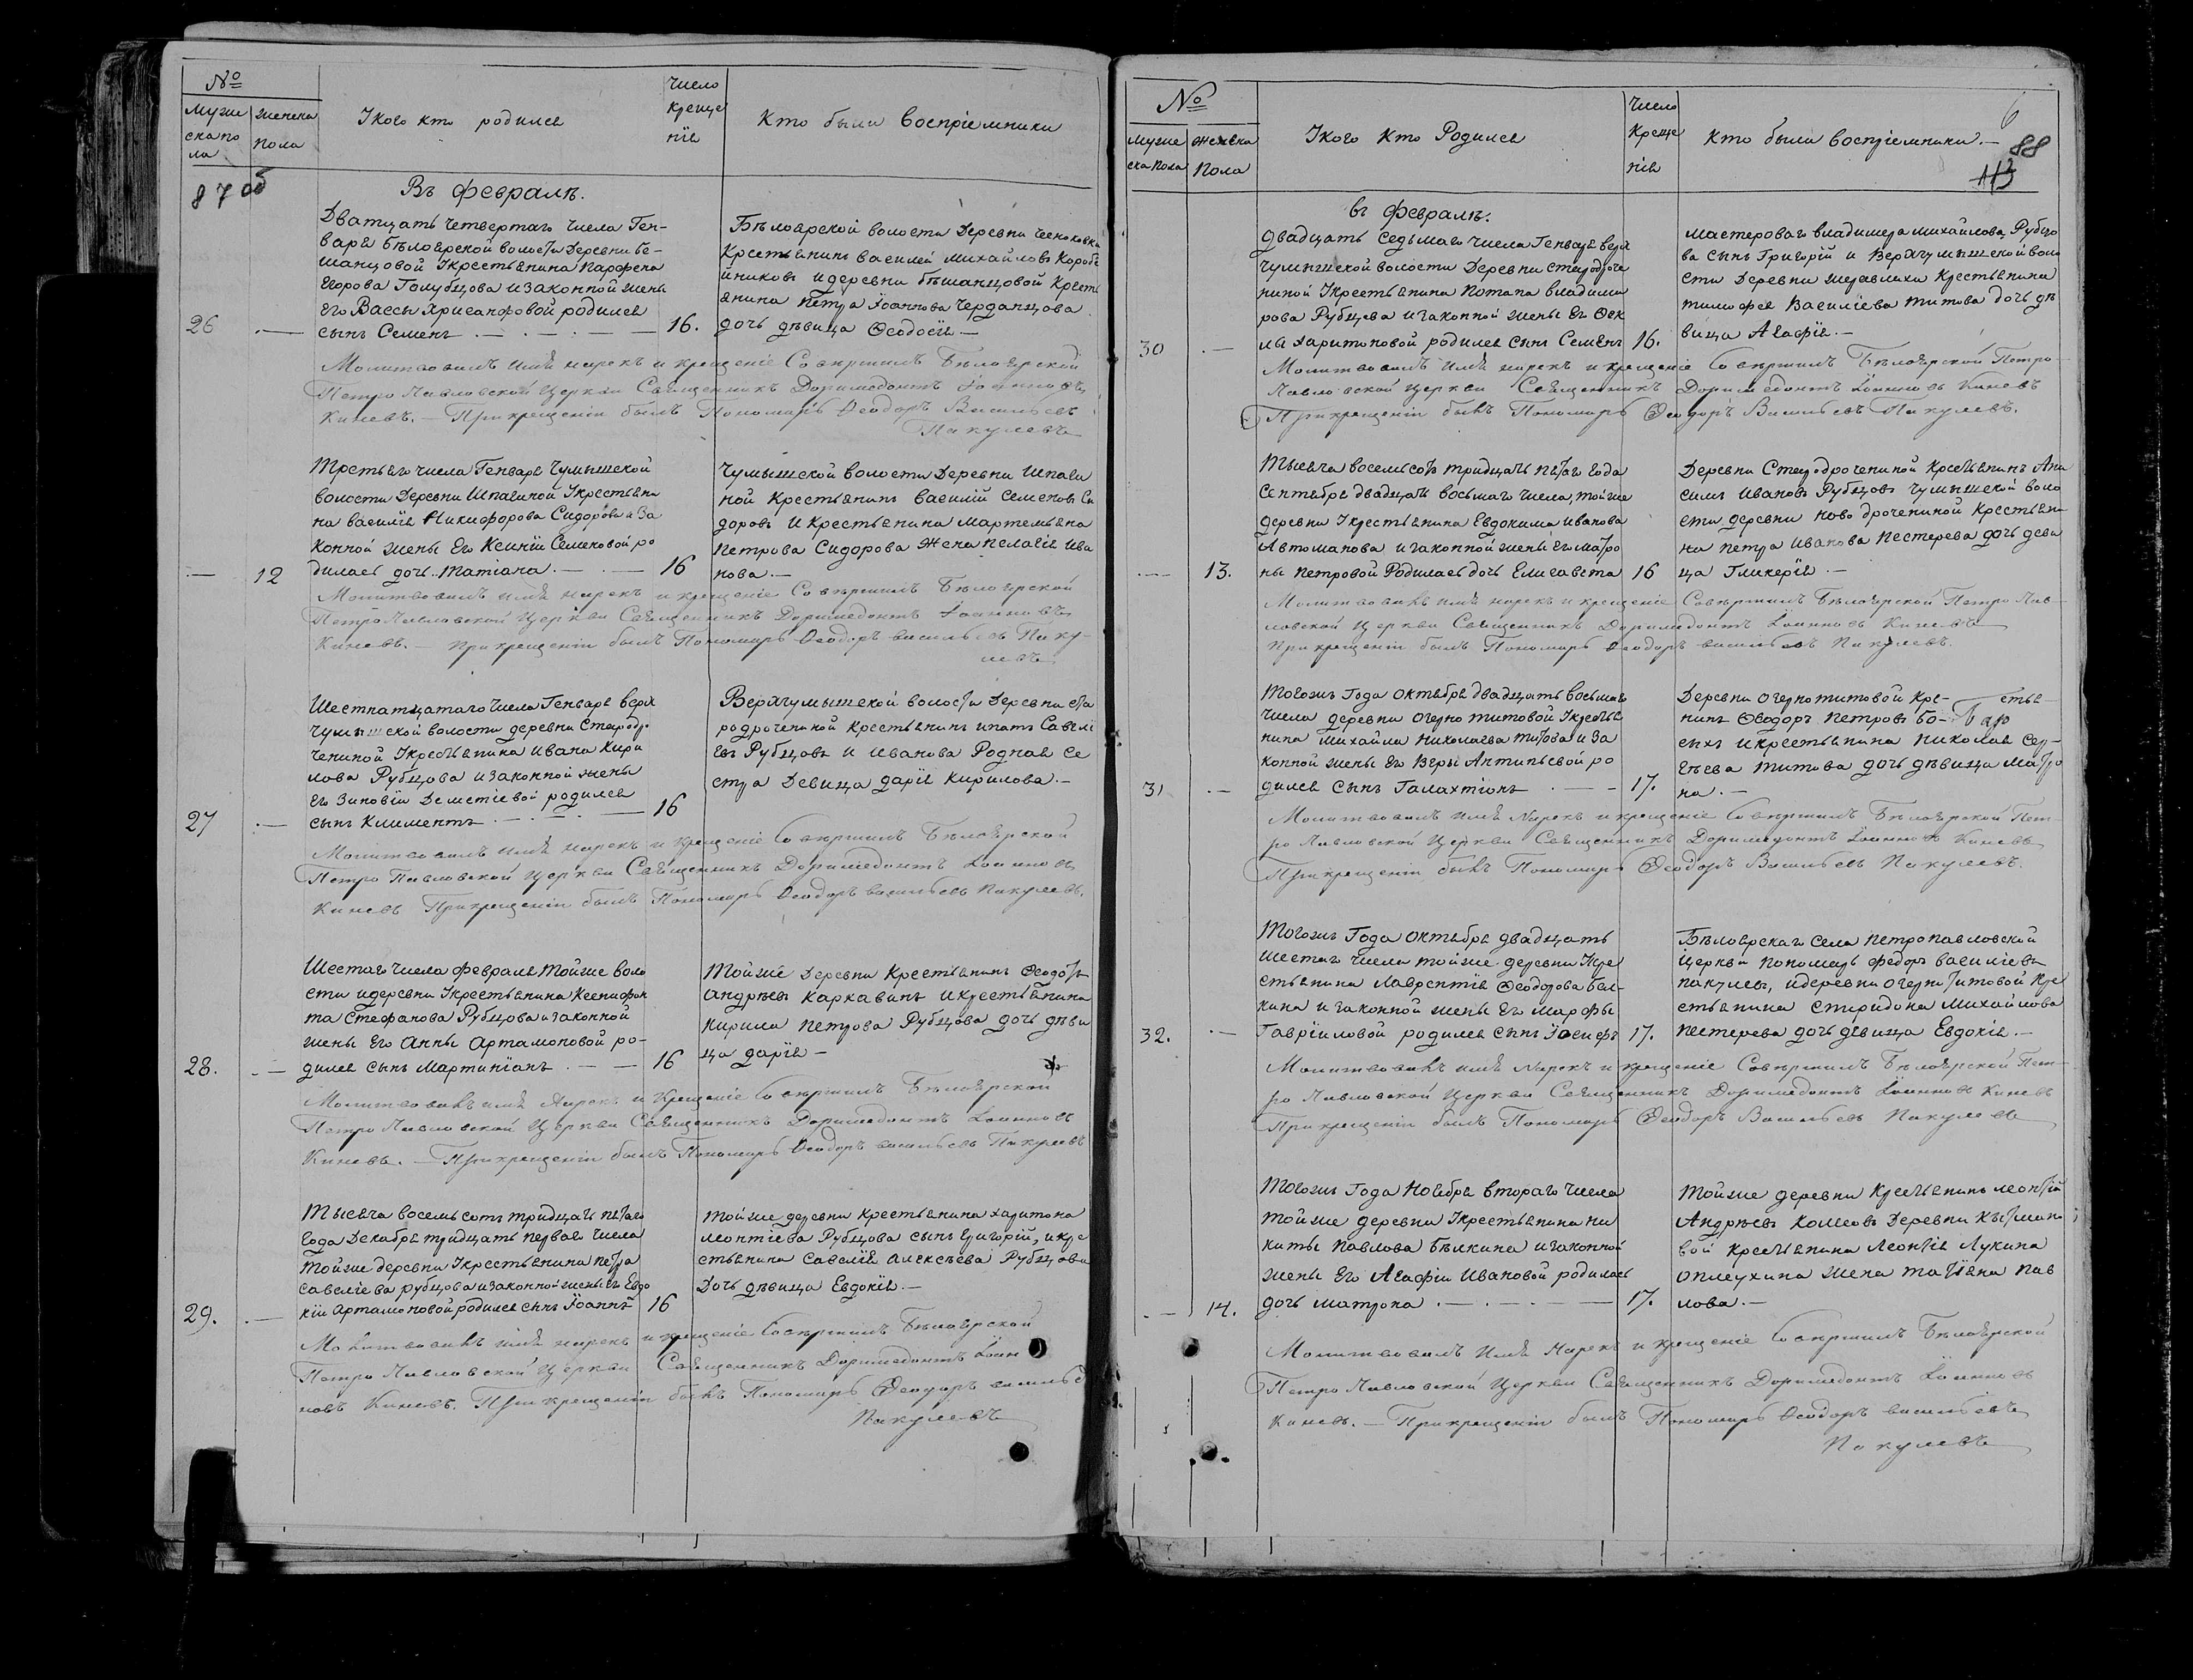 №
Мужескаго пола
женска пола
Укого кто родился
Число крещенія
Кто были воспріемники
87 об
Въ февралѣ.
Дватцать четвертаго числа Ген-
варя Бѣлоярской волости деревни Бе-
шанцовой Укрестьянина Парфена
Егорова Голубцова и законной жены
Его Вассы Хрисанфовой родился
сынъ Семенъ
26
16.
Бѣлоярской волости деревни Чесноковки
Крестьянинъ Василей Михайловъ Коробе
йниковъ и деревни бѣшанцовой Кресть
янина Петра Іоаннова Черданцова
дочь дѣвица Ѳеодосія —
Молитвовалъ имя нарекъ и крещеніе Совершилъ Бѣлоярской
Петро Павловской Церкви Священникъ Доримедонтъ Іоанновъ
Киневъ. — При крещеніи былъ Пономарь Ѳеодоръ Васильевъ
Пакулевъ
Третьяго числа Генваря Чумышской
волости Деревни Шпагиной Укрестьяни
на Василія Никифорова Сидорова и за
конной жены Его Ксеніи Семеновой ро
дилась дочь Татіана.
12
16
Чумышской волости Деревни Шпаги
ной Крестьянинъ Василій Семеновъ Си
доровъ и Крестьянина Мартемьяна
Петрова Сидорова жена Пелагія Ива
нова. —
Молитвовалъ имя нарекъ и крещеніе Совершилъ Бѣлоярской
Петро Павловской Церкви Священникъ Доримедонтъ Іоанновъ
Киневъ. — При крещеніи былъ Пономарь Ѳеодоръ Васильевъ Паку-
левъ
Шестнатцатаго числа Генваря верх
чумышской волости деревни Стародро
чениной Укрестьянина Ивана Кири
лова Рубцова и законной жены
Его Зиновіи Деметіевой родился
сынъ Климентъ
27
16
Верхчумышской волости Деревни ста
родрочениной Крестьянинъ Ипатъ Савелі
евъ Рубцовъ и Иванова Родная се
стра Девица Дарія Кирилова. —
Молитвовалъ имя нарекъ и крещеніе Совершилъ Бѣлоярской
Петро Павловской Церкви Священникъ Доримедонтъ Іоанновъ
Киневъ При крещеніи былъ Пономарь Ѳеодоръ Васильевъ Пакулевъ.
Шестаго числа февраля Тойже воло
сти и деревни Укрестьянина Ксенифон
та Стефанова Рубцова и законной
жены Его Анны Артамоновой ро-
дился сынъ Мартиніанъ
28.
16
Тойже Деревни Крестьянинъ Ѳеодотъ
Андрѣевъ Каркавинъ и крестьянина
Кирила Петрова Рубцова дочь дѣви
ца Дарія —
Молитвовалъ имя нарекъ и крещеніе Совершилъ Бѣлоярской
Петро Павловской Церкви Священникъ Доримедонтъ Іоанновъ
Киневъ. — При крещеніи былъ Пономарь Ѳеодоръ Васильевъ Пакулевъ
Тысяча восемь сотъ тридцать пятаго
года Декабря тридцать перваго числа
Тойже деревни Укрестьянина Петра
Савелиева Рубцова и законной жены Его Евдо
кіи Артамоновой родился сынъ Іоаннъ
29.
16
Тойже деревни Крестьянина Харитона
Леонтіева Рубцова сынъ Григорій, и кре
стьянина Савелія Алексѣева Рубцова
Дочь дѣвица Евдокія. —
Молитвовалъ имя нарекъ и крещеніе Совершилъ Бѣлоярской
Петро Павловской Церкви Священникъ Доримедонтъ Іоан
новъ Киневъ. При крещеніи былъ Пономарь Ѳеодоръ Василье
Пакулевъ
№
Мужескапола
женска Пола
Укого кто Родился
Число Крещенія
Кто были воспріемники. —
6
88
въ февралѣ.
Двадцать седьмаго числа Генваря верх
чумышской волости Деревни Стародроче
ниной Укрестьянина Потапа Владими
рова Рубцова и законной жены Его Ѳек
лы Харитоновой родился сынъ Семенъ
30
16.
Мастероваго Владимера Михайлова Рубцо
ва сынъ Григорій и Верхчумышской воло
сти Деревни Журавлихи Крестьянина
Тимофея Василіева Титова дочь дѣ
вица Агафія. —
Молитвовалъ имя нарекъ и крещеніе Совершилъ Бѣлоярской Петро-
Павловской Церкви Священникъ Доримедонтъ Іоанновъ Киневъ
При крещеніи былъ Пономарь Ѳеодоръ Васильевъ Пакулевъ.
Тысяча восемьсотъ тридцать пятаго года
Сентября двадцать восьмаго числа, тойже
деревни Укрестьянина Евдокима Иванова
Автоманова и законной жены Его Матро
ны Петровой Родилась дочь Елисавета
13.
16
Деревни Стародрочениной Крестьянинъ Ани
симъ Ивановъ Рубцовъ Чумышской воло
сти деревни Ново дрочениной Крестьяни
на Петра Иванова Пестерева дочь деви
ца Гликерія. —
Молитвовалъ имя нарекъ и крещеніе Совершилъ Бѣлоярской Петро Пав-
ловской Церкви Священникъ Доримедонтъ Іоанновъ Киневъ
При крещеніи былъ Пономарь Ѳеодоръ Васильевъ Пакулевъ.
Тогожъ Года Октября двадцать восьмаго
числа деревни Огерно титовой Укрестья
нина Михайла Николаева Титова и за
конной жены Его Веры Антипьевой ро
дился сынъ Галактіонъ
31
17.
Деревни Огернотитовой Кре- стья
нинъ Ѳеодоръ Петровъ Бо- Бар
сихъ и крестьянина Николая Сер-
гѣева Титова дочь дѣвица Матро
на. —
Молитвовалъ имя нарекъ и крещеніе Совершилъ Бѣлоярской Пет-
ро Павловской Церкви Священникъ Доримедонтъ Іоанновъ Киневъ
При крещеніи былъ Пономарь Ѳеодоръ Васильевъ Пакулевъ.
Тогожъ Года Октября двадцать
Шестаго числа тойже деревни Укре
стьянина Лаврентія Ѳеодорова Бѣл-
кина и законной жены Его Марфы
Гавріиловой родился сынъ Іосифъ
32.
17.
Бѣлоярскаго села Петропавловской
Церкви Пономарь Федоръ Василіевъ
Пакулевъ, и деревни Огерно титовой Кре
стьянина Спиридона Михайлова
Пестерева дочь дѣвица Евдокія. —
Молитвовалъ имя нарекъ и крещеніе Совершилъ Бѣлоярской Пет-
ро Павловской Церкви Священникъ Доримедонтъ Іоанновъ Киневъ
При крещеніи былъ Пономарь Ѳеодоръ Васильевъ Пакулевъ
Тогожъ Года Ноября втораго числа
тойже деревни Укрестьянина Ни
киты Павлова Бѣлкина и законной
жены Его Агафіи Ивановой родилась
дочь Матрона
14.
17.
Тойже деревни Крестьянинъ Леонтій
Андрѣевъ Комеовъ Деревни Кытмано
вой крестьянина Леонтія Лукина
Оплеухина жена Татіяна Пав
лова. —
Молитвовалъ Имя Нарекъ и крещеніе Совершилъ Бѣлоярской
Петро Павловской Церкви Священникъ Доримедонтъ Іоанновъ
Киневъ. — При крещеніи былъ Пономарь Ѳеодоръ Васильевъ
Пакулевъ